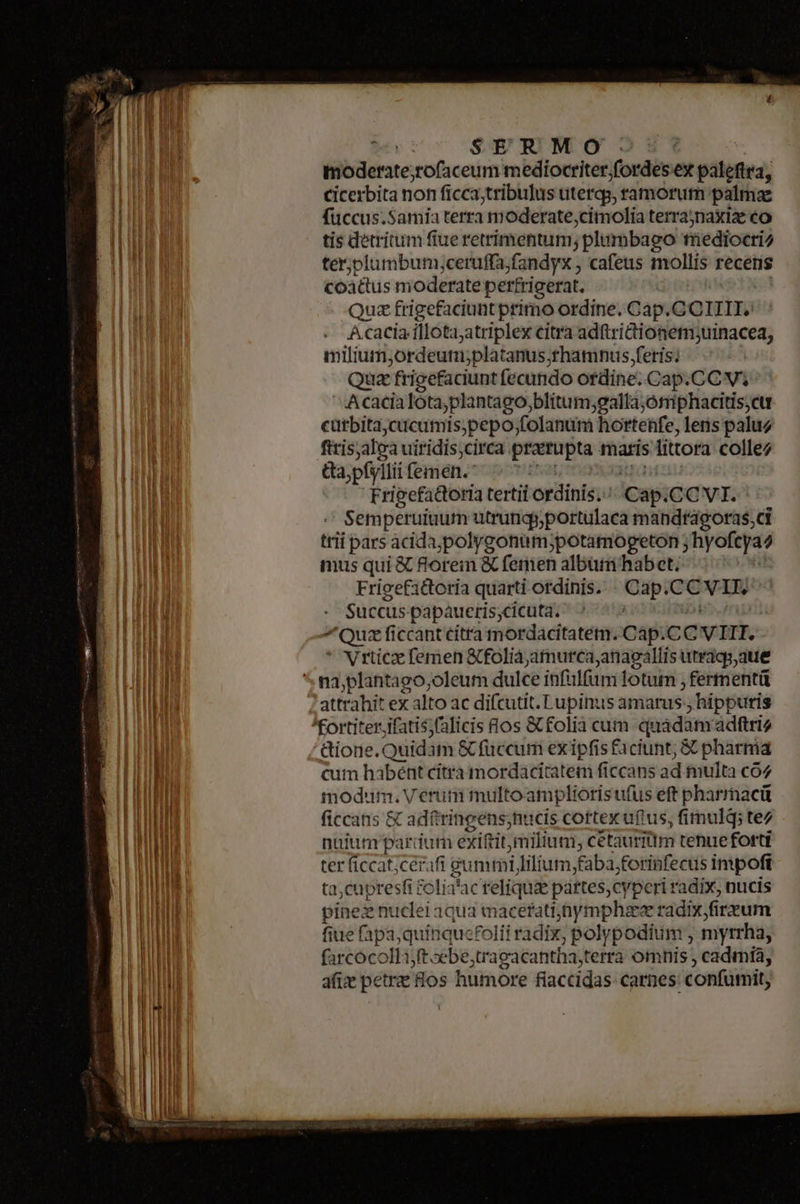 SERMO
moderate,rosaceum mediocriter,sordes ex palestra,
cicerbita non sicca,tribulus uterq;, ramorum palmæ
succus.Samia terra moderate,cimolia terra,naxiæ co
tis detritum siue retrimentum, plumbago mediocri⸗
ter,plumbum,cerussa,sandyx, caseus mollis recens
coactus moderate perfrigerat.
Quæ frigefaciunt primo ordine. Cap.CCIIII.
Acacia illota,atriplex citra adstrictionem,uinacea,
milium,ordeum,platanus,rhamnus,seris.
Quæ frigefaciunt secundo ordine. Cap.CCV.
Acacia lota,plantago,blitum,galla,omphacitis,cu
curbita,cucumis,pepo,solanum hortense, lens palu⸗
stris,alga uiridis,circa prærupta maris littora colle⸗
cta,psyllii semen.
Frigefactoria tertii ordinis. Cap.CCVI.
Semperuiuum utrunq;,portulaca mandragoras,ci
trii pars acida,polygonum,potamogeton, hyoscya⸗
mus qui & florem & semen album habet.
Frigefactoria quarti ordinis. Cap.CCVII.
Succus papaueris,cicuta.
Quæ siccant citra mordacitatem. Cap.CCVIII.
Vrticæ semen & folia,amurca,anagallis utraq;,aue
na,plantago,oleum dulce insulsum lotum, fermentū
attrahit ex alto ac discutit. Lupinus amarus, hippuris
fortiter,isatis,salicis flos & folia cum quadam adstri⸗
ctione. Quidam & succum ex ipsis faciunt, & pharma
cum habent citra mordacitatem siccans ad multa cō⸗
modum. Verum multo amplioris usus est pharmacū
siccans & adstringens,nucis cortex ustus, simulq; te⸗
nuium partium existit,milium, cētaurium tenue forti
ter siccat,cerasi gummi,lilium,faba,forinsecus imposi
ta,cupressi folia ac reliquæ partes,cyperi radix, nucis
pineæ nuclei aqua macerati,nymphææ radix,siræum
siue sapa,quinquefolii radix, polypodium, myrrha,
sarcocolla,stœbe,tragacantha,terra omnis, cadmia,
asiæ petræ flos humore flaccidas carnes consumit,